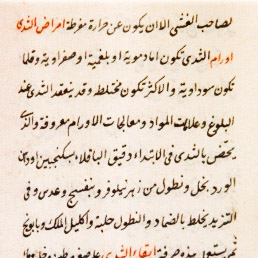 لصاحب الغشى الا ان يكون عن حرارة مفرطة امراض الثدى
اورام الثدى تكون اما دموية او بلغمية او صفراوية وقلما
تكون سوداوية والاكثر تكون مختلطة وقد ينعقد الثدى عند
البلوغ وعلامات المواد ومعالجات الاورام معروفة والذى
يختص بالثدى فى الابتداء دقيق الباقلاء بسكنجبين او دهن
الورد بخل ونطول من زهر نيلوفر وبنفسج وعدس وفى
التزيد يخلط بالضماد والنطول حلبة واكليل الملك وبابونج
ثم يستعمل هذه صرفة